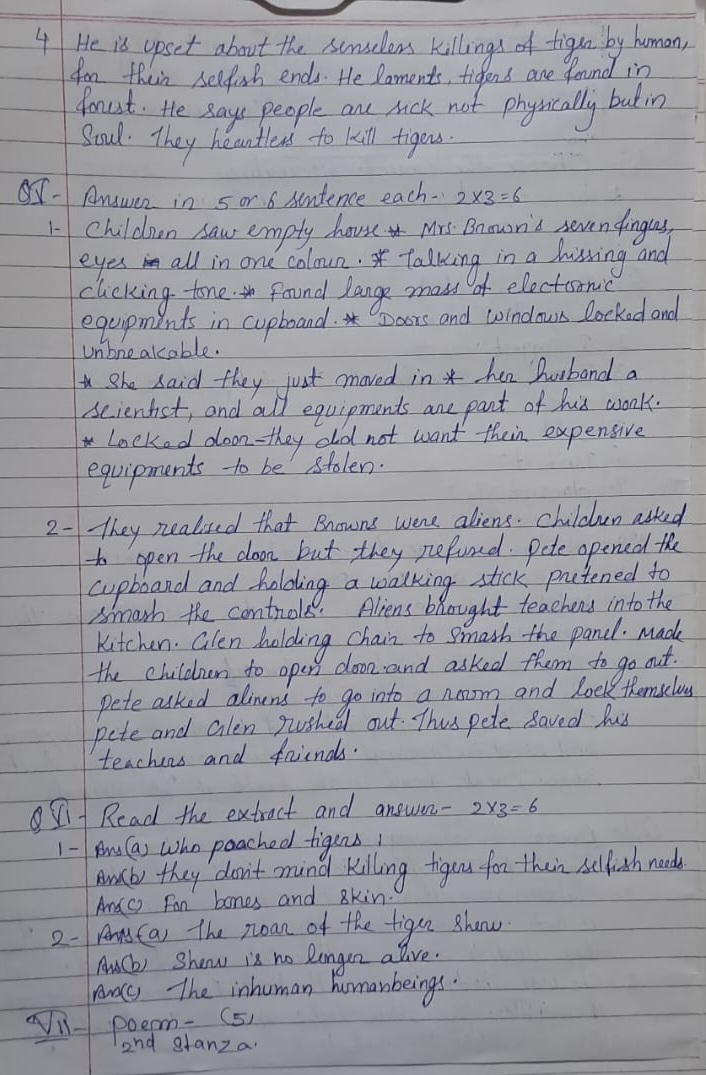 4 He is upset about the senseless killings of tiger by human,
for their selfish ends. He laments, tigers are found in
forest. He says people are sick not physically but in
Soul. They heartless to kill tigers.
QV- Answer in 5 or 6 sentence each- 2x3=6
1- Children saw empty house * Mrs. Brown's seven fingers,
eyes in all in one colour. * Talking in a hissing and
clicking tone. * Found large mass of electronic
equipments in cupboard. * Doors and windows locked and
unbreakable.
* She said they just moved in * her husband a
scientist, and all equipments are part of his work.
* Locked door-they did not want their expensive
equipments to be stolen.
2- They realized that Browns were aliens. Children asked
to open the door but they refused. Pete opened the
cupboard and holding a walking stick pretened to
smash the controls. Aliens brought teachers into the
kitchen. Glen holding chair to smash the panel. Made
the children to open door and asked them to go out.
Pete asked alinens to go into a room and lock themselves
Pete and Glen rushed out. Thus pete saved his
teachers and friends.
Q VI- Read the extract and answer- 2x3=6
1- Ans(a) Who poached tigers
Ans(b) they don't mind killing tigers for their selfish needs.
Ans(c) For bones and skin.
2- Ans(a) The roar of the tiger Sheru.
Ans(b) Sheru is no longer alive.
Ans(c) The inhuman humanbeings.
VII- Poem- (5)
2nd stanza.